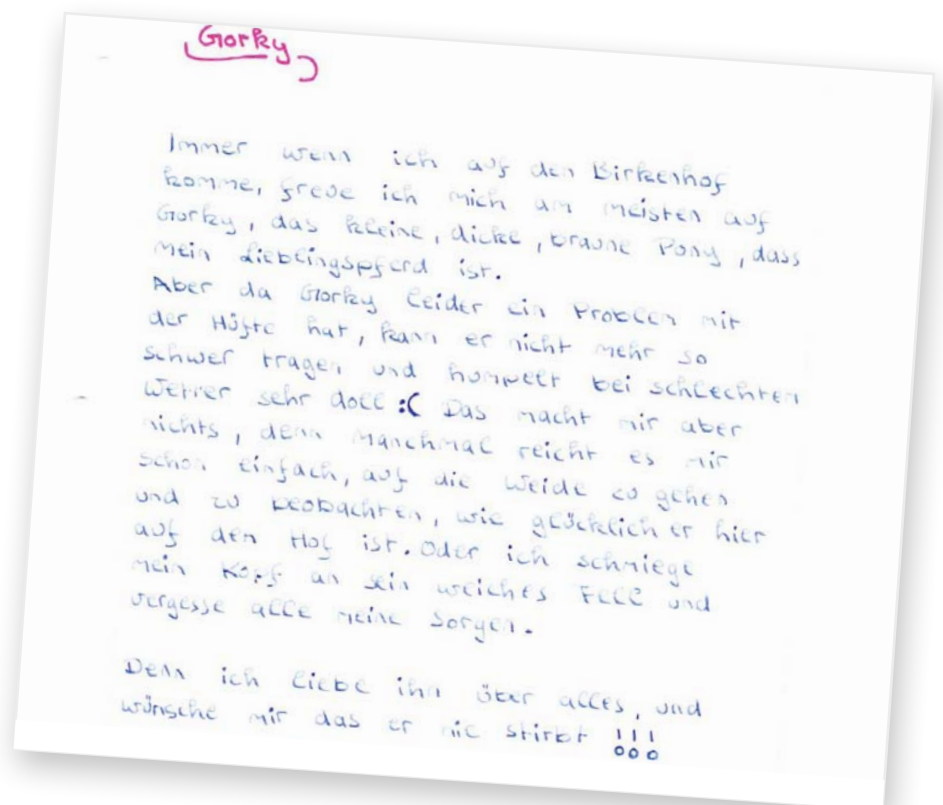 Gorky
Immer wenn ich auf den Birkenhof
komme, freue ich mich am meisten auf
Gorky, das kleine, dicke, braune Pony, dass
mein Lieblingspferd ist.
Aber da Gorky leider ein Problem mit
der Hüfte hat, kann er nicht mehr so
schwer tragen und humpelt bei schlechten
Wetter sehr doll :( Das macht mir aber
nichts, denn manchmal reicht es mir
schon einfach, auf die Weide zu gehen
und zu beobachten, wie glücklich er hier
auf den Hof ist. Oder ich schmiege
mein Kopf an sein weiches Fell und
vergesse alle meine Sorgen.
Denn ich liebe ihn über alles, und
wünsche mir das er nie stirbt !!!